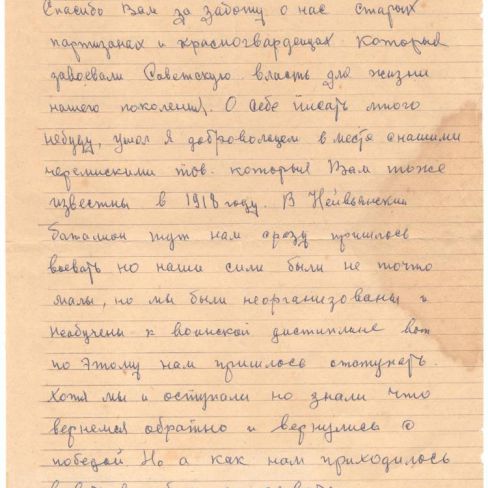 Спасибо Вам за заботу о нас старых
партизанах и красногвардейцах которые
завоевали Советскую власть для жизни
нашего поколения. О Себе писать много
небуду, ушол я добровольцем в месте снашими
черемискими тов. которыя Вам тоже
известны в 1918 году. В Нейвьянский
баталион тут нам сразу пришлось
воевать но наши сили были не точто
малы, но мы были неорганизованы и
необучены к воинской дистиплине вот
по этому нам пришлось отступать.
Хотя мы и оступали но знали что
вернемся обратно и вернулись с
победой. Но а как нам приходилось